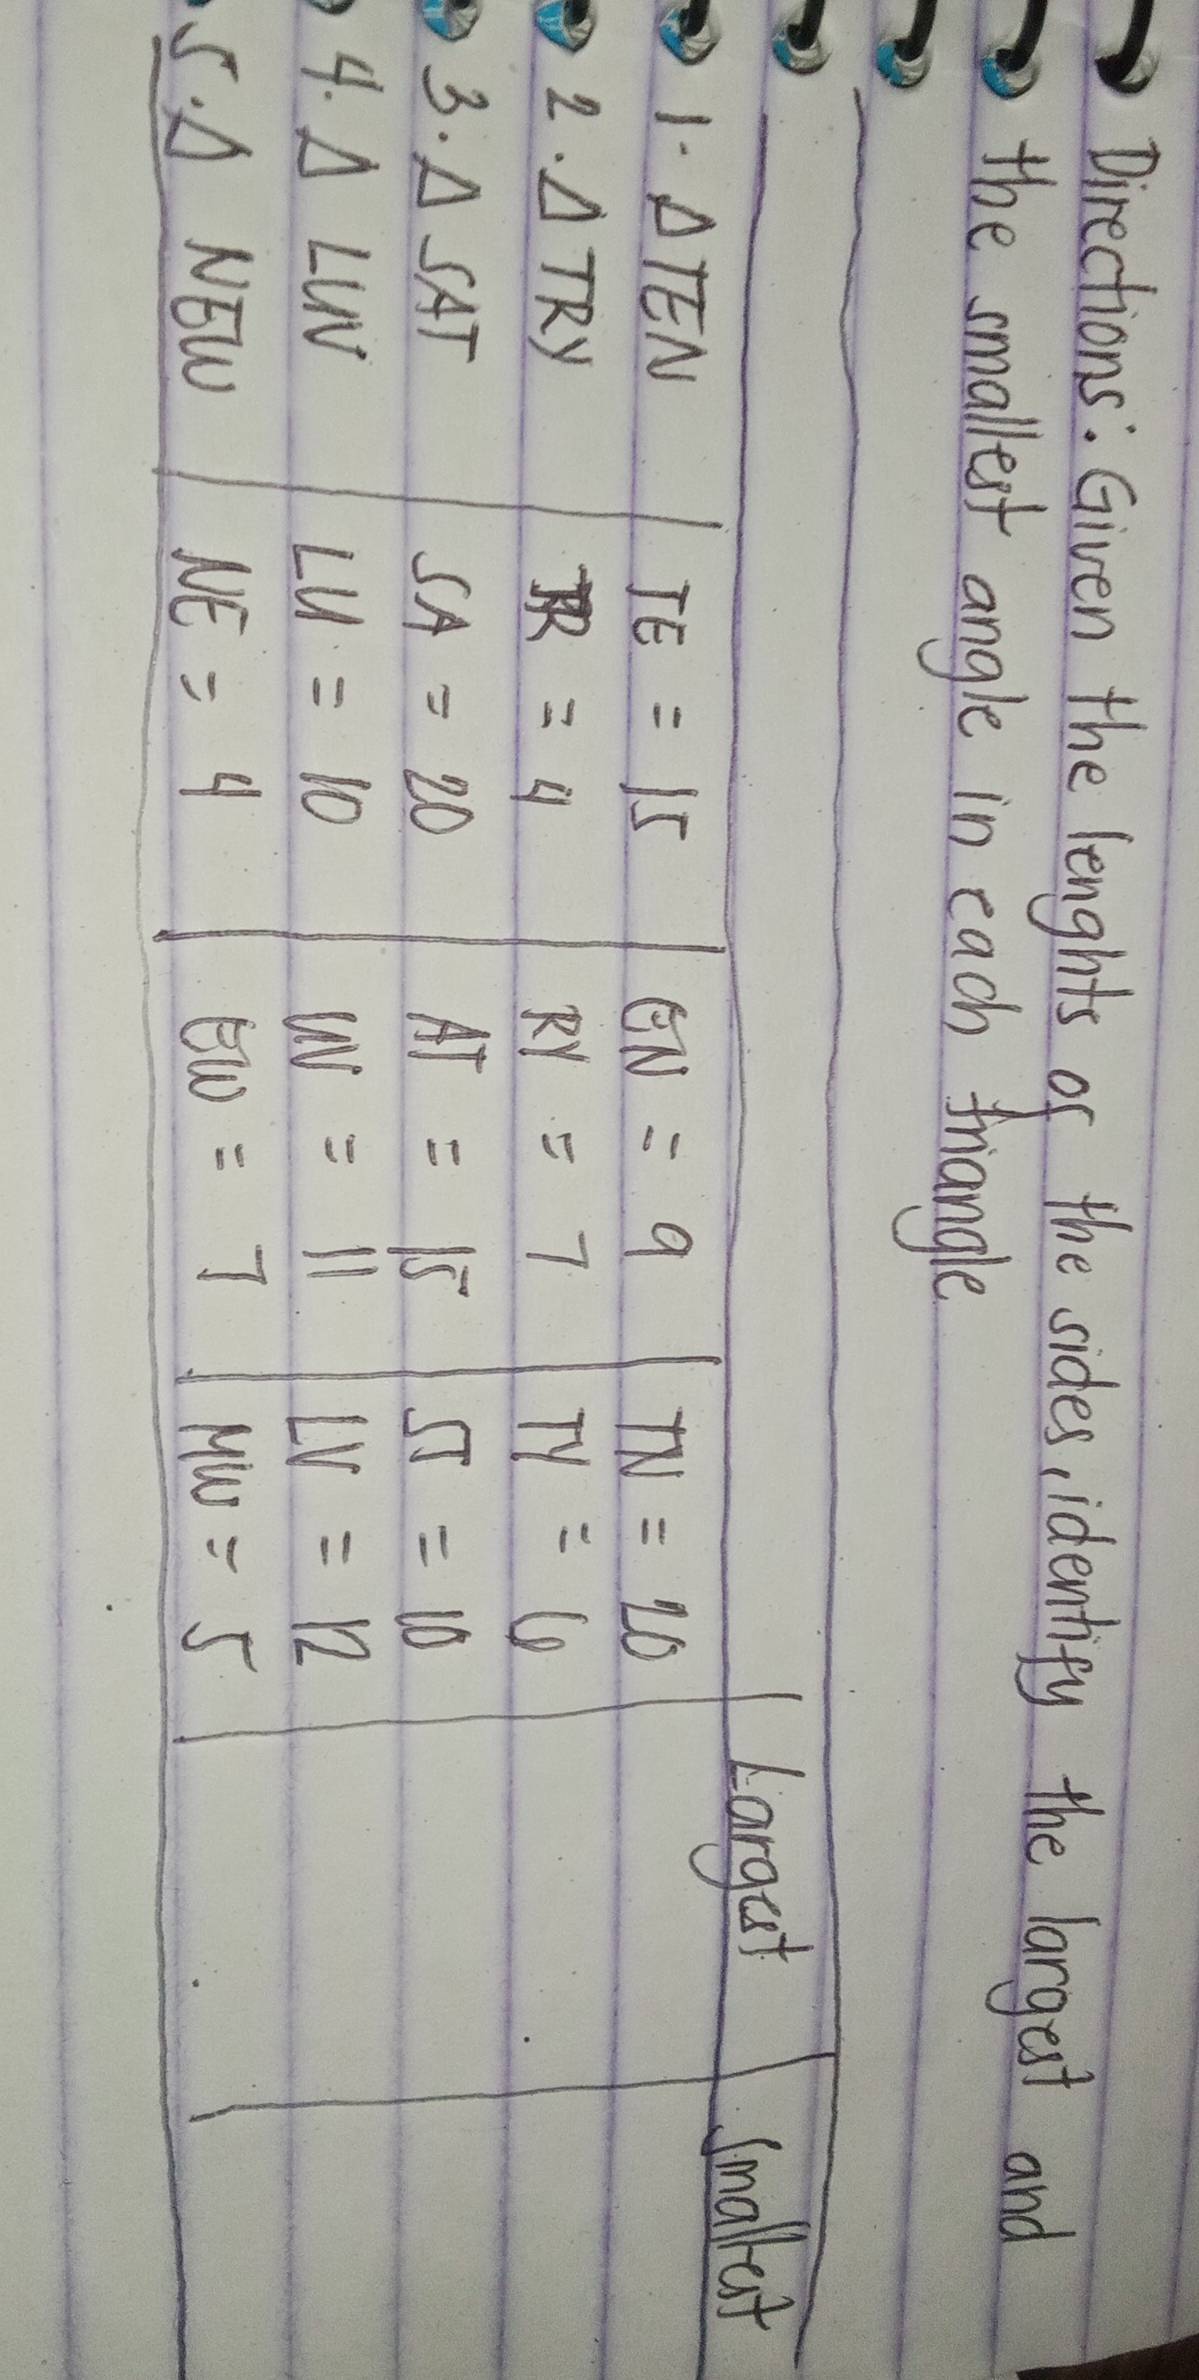 Directions: Given the lenghts of the sides, identify the largest and
the smallest angle in each triangle
Largest Smallest
1. Δ TEN TE = 15 EN = 9 TN = 20
2. Δ TRY TR = 4 RY = 7 TY = 6
3. Δ SAT SA = 20 AT = 15 ST = 10
4. Δ LUV LU = 10 UV = 11 LV = 12
5. Δ NEW NE = 4 EW = 7 MW = 5